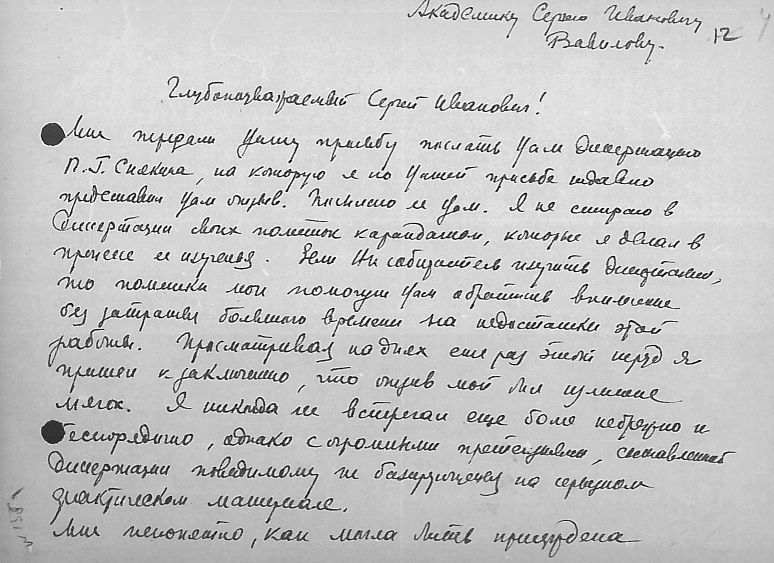 Академику Сергею Ивановичу
Вавилову.
12
Глубокоуважаемый Сергей Иванович!
Мне передали Вашу просьбу послать Вам диссертацию
П.Г. на которую я по Вашей просьбе недавно
представил Вам отзыв. Посылаю ее Вам. Я не стираю в
диссертации своих пометок карандашом, которые я делал в
процессе ее изучения. Если Вы собираетесь изучить диссертацию,
то пометки мои помогут Вам обратить внимание
без затраты большого времени на недостатки этой
работы. Просматривая на днях еще раз этот я
пришел к заключению, что отзыв мой был излишне
мягок. Я никогда не встречал еще более небрежно и
беспорядочно, однако с огромными претензиями, составленной
диссертации повидимому не базирующейся на серьезном
фактическом материале.
Мне непонятно, как могла быть присуждена